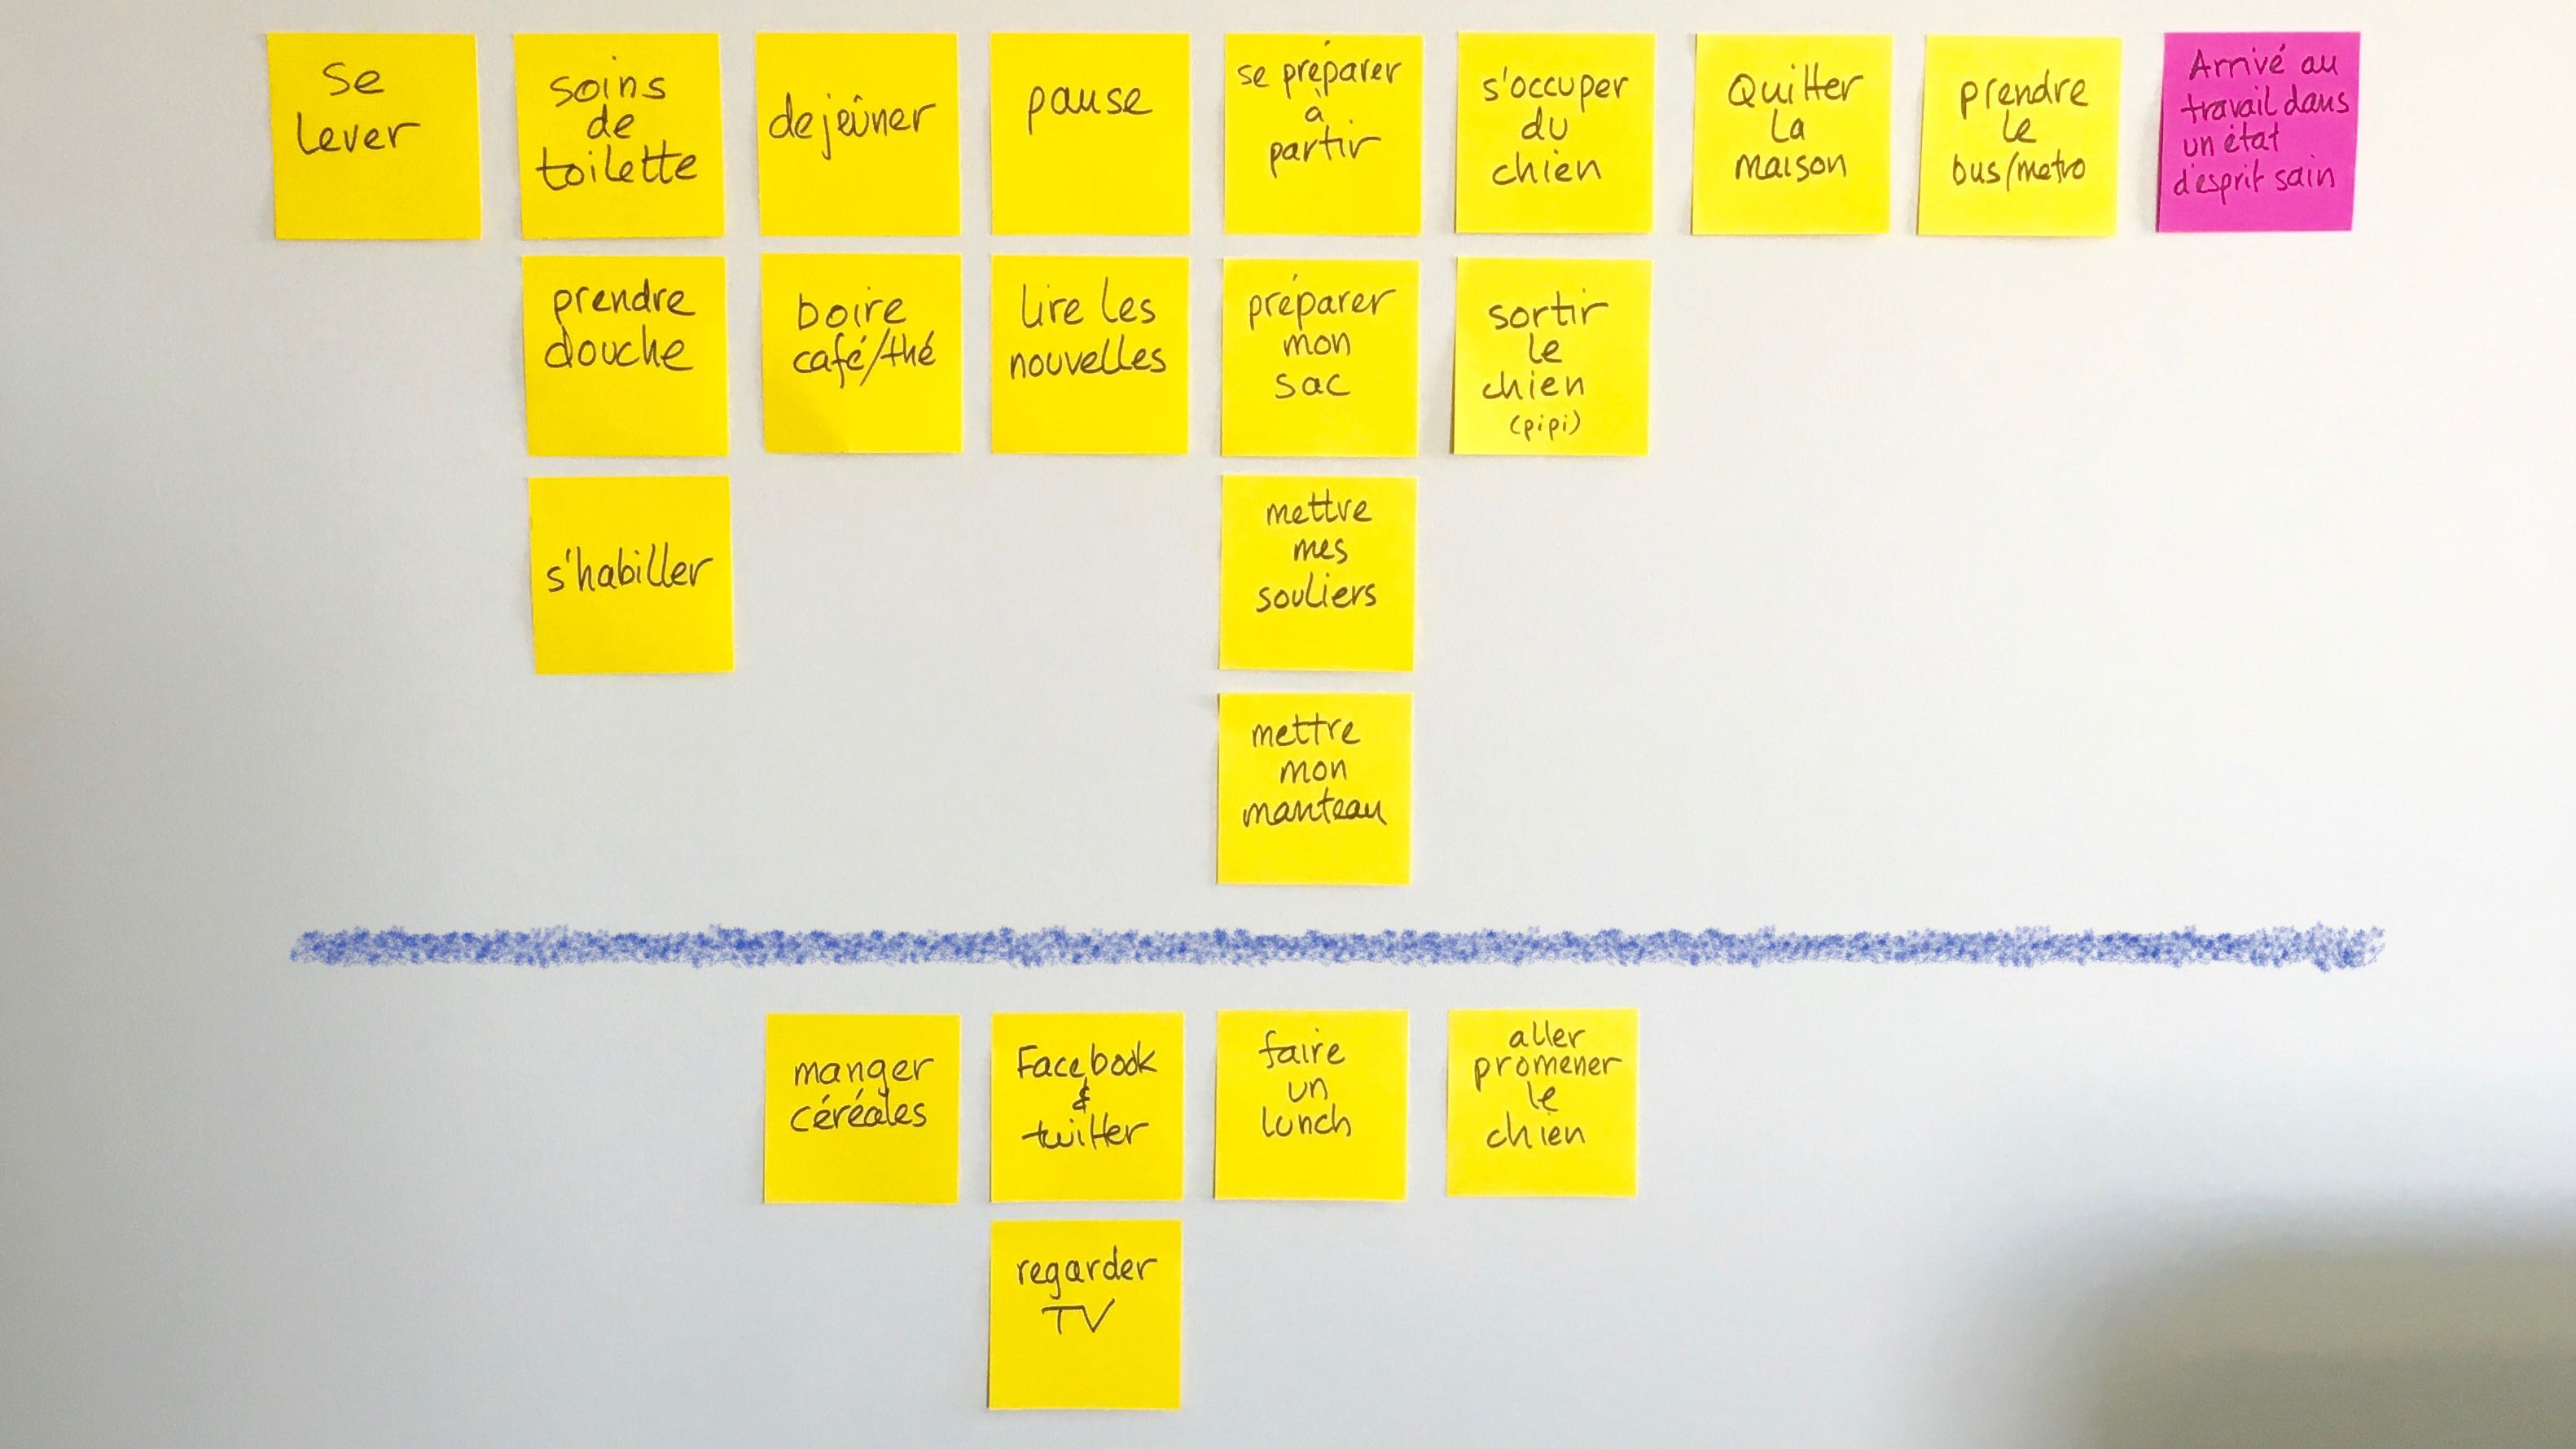 se
lever
soins
de
toilette
dejeûner
pause
se préparer
à
partir
s'occuper
du
chien
Quitter
la
maison
prendre
le
bus/metro
Arrivé au
travail dans
un état
d'esprit sain
prendre
douche
boire
café/thé
lire les
nouvelles
préparer
mon
sac
sortir
le
chien
(pipi)
s'habiller
mettre
mes
souliers
mettre
mon
manteau
manger
céréales
Facebook
&
twitter
faire
un
lunch
aller
promener
le
chien
regarder
TV